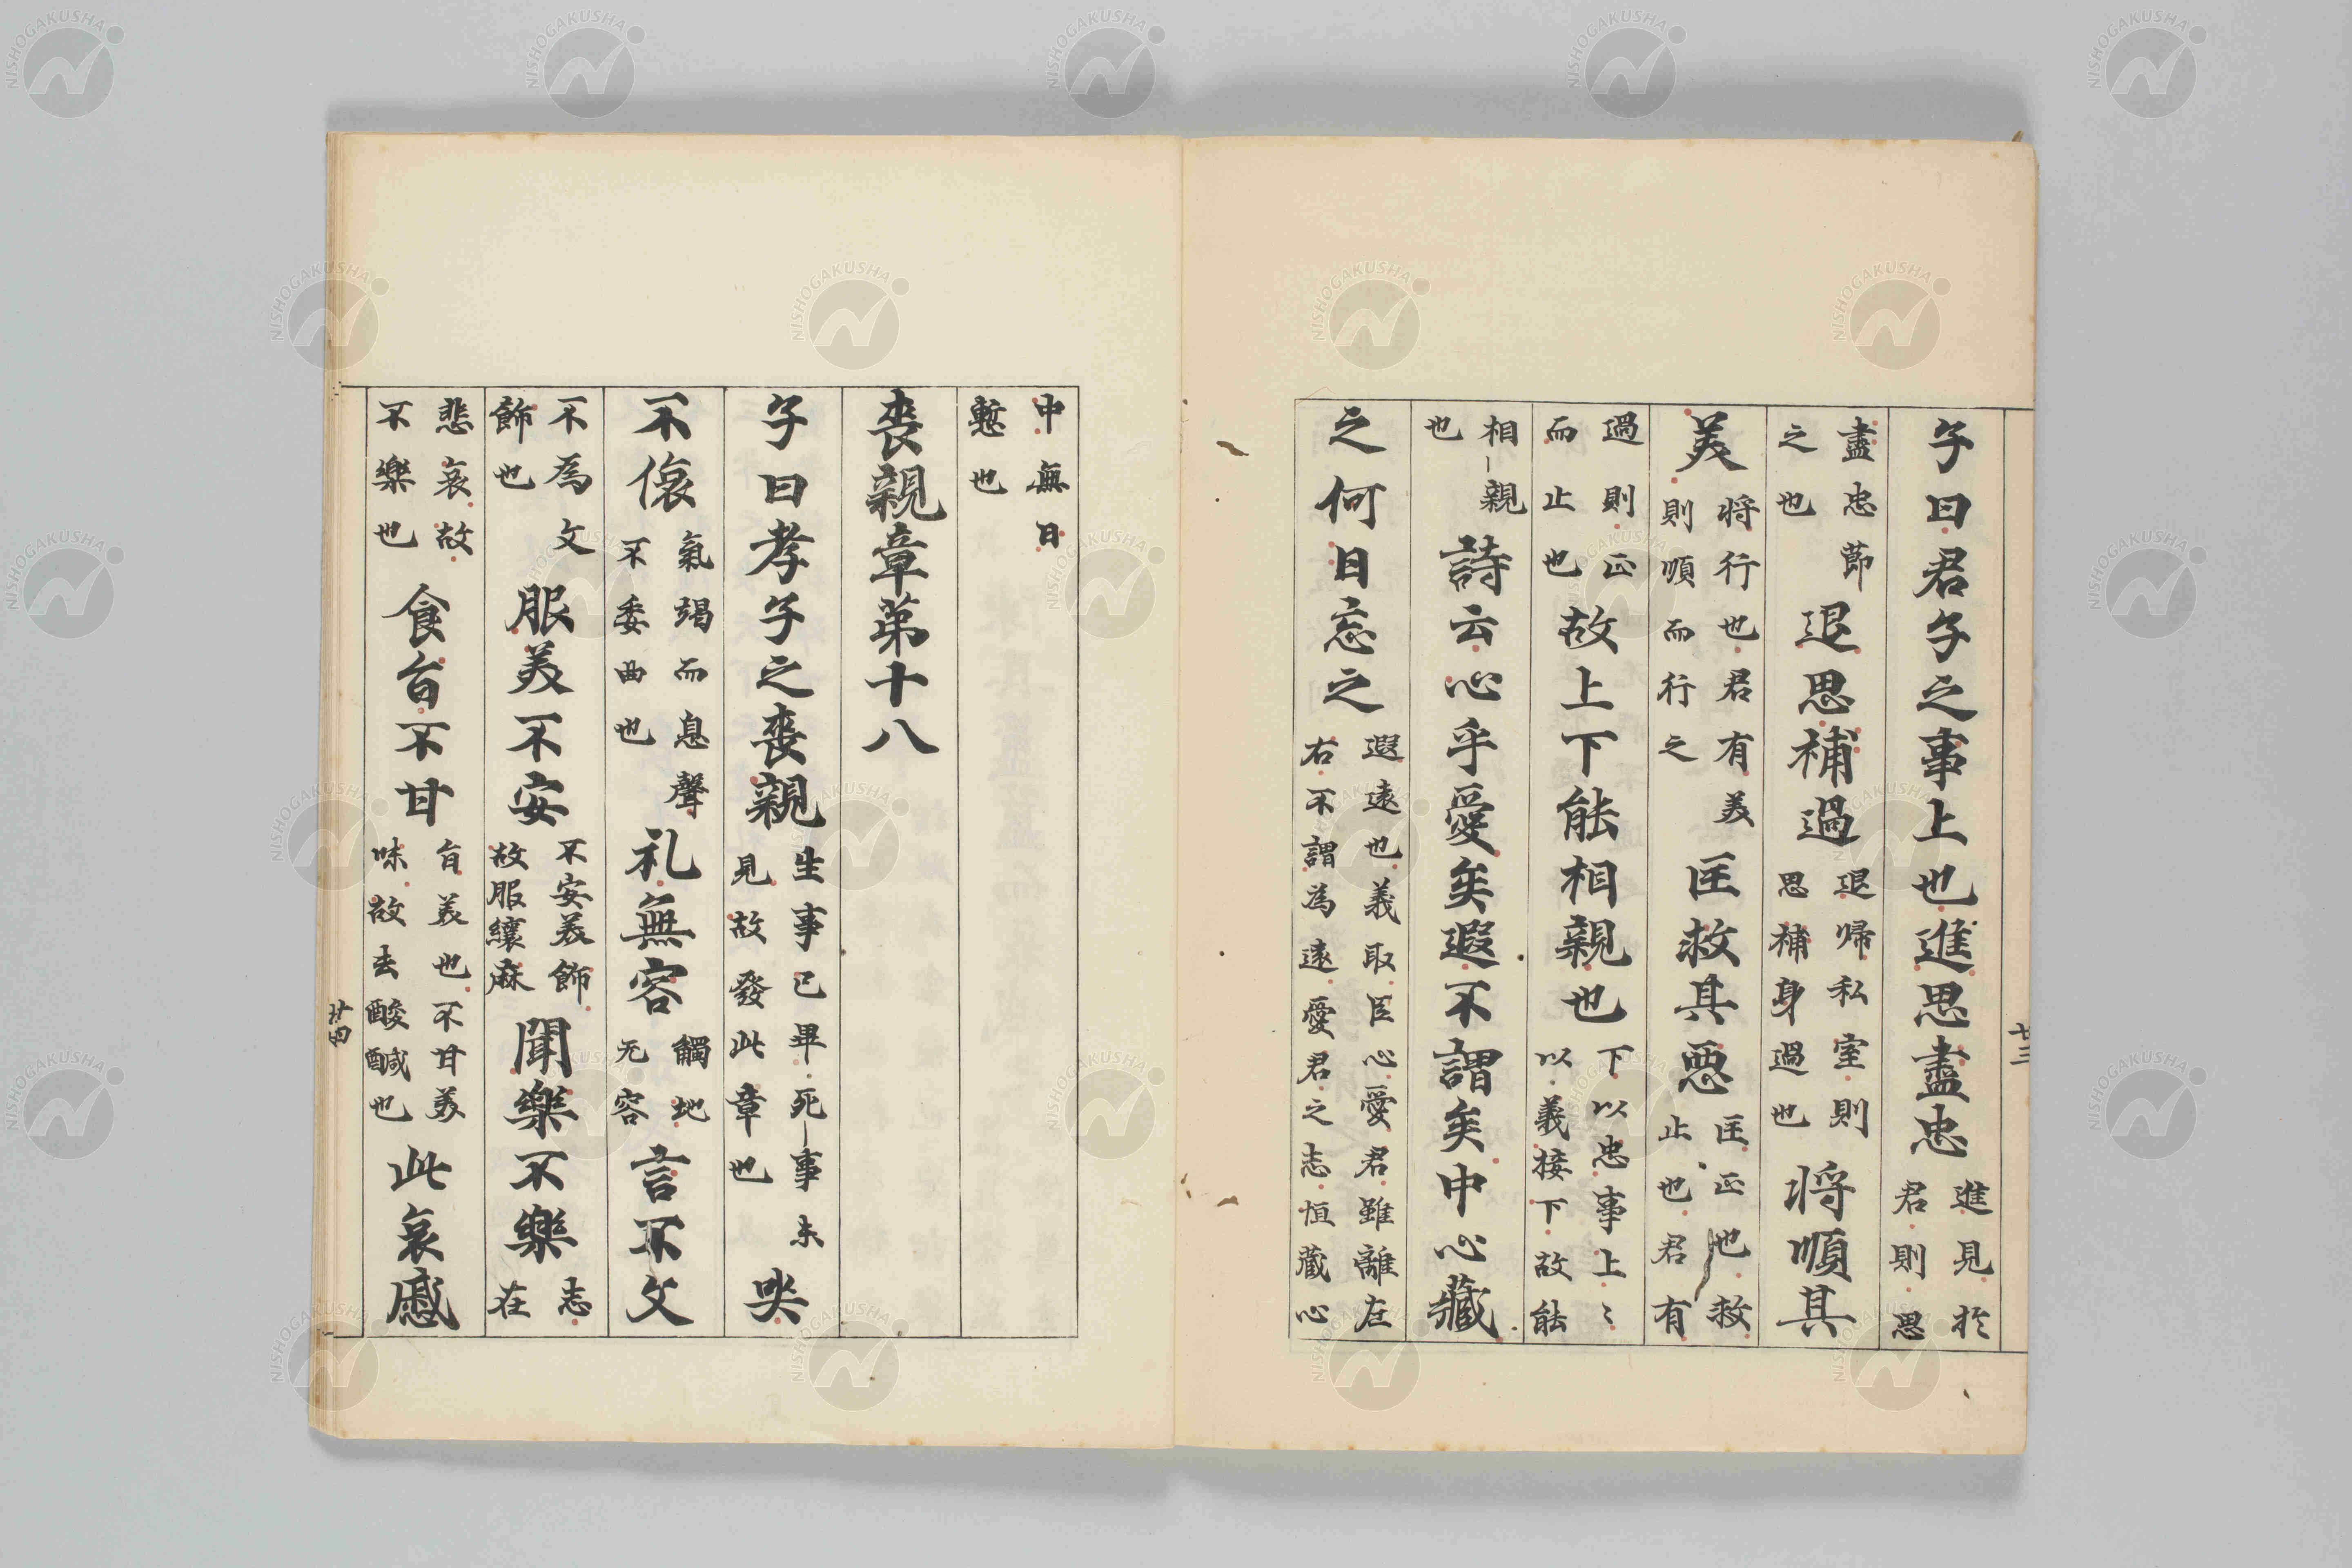 廿三
子曰君子之事上也進思盡忠進見於君則思
盡忠節之也退思補過退帰私室則思補身過也将順其
美将行也君有美則順而行之匡救其悪匡正也救止也君有
過則正而止也故上下能相親也下以忠事上〻以義接下故能
相親也詩云心乎愛矣遐不謂矣中心藏
之何日忘之遐遠也義取臣心愛君雖離左右不謂為遠愛君之志恒蔵心
中無日慙也
喪親章第十八
子曰孝子之喪親生事已畢死事未見故發此章也哭
不偯氣竭而息聲不委曲也礼無容觸地无容言不文
不為文飾也服美不安不安美飾故服纕麻聞樂不樂志在
悲哀故不樂也食旨不甘旨美也不甘美味故去酸鹹也此哀慼
廿四
NISHOGAKUSHA